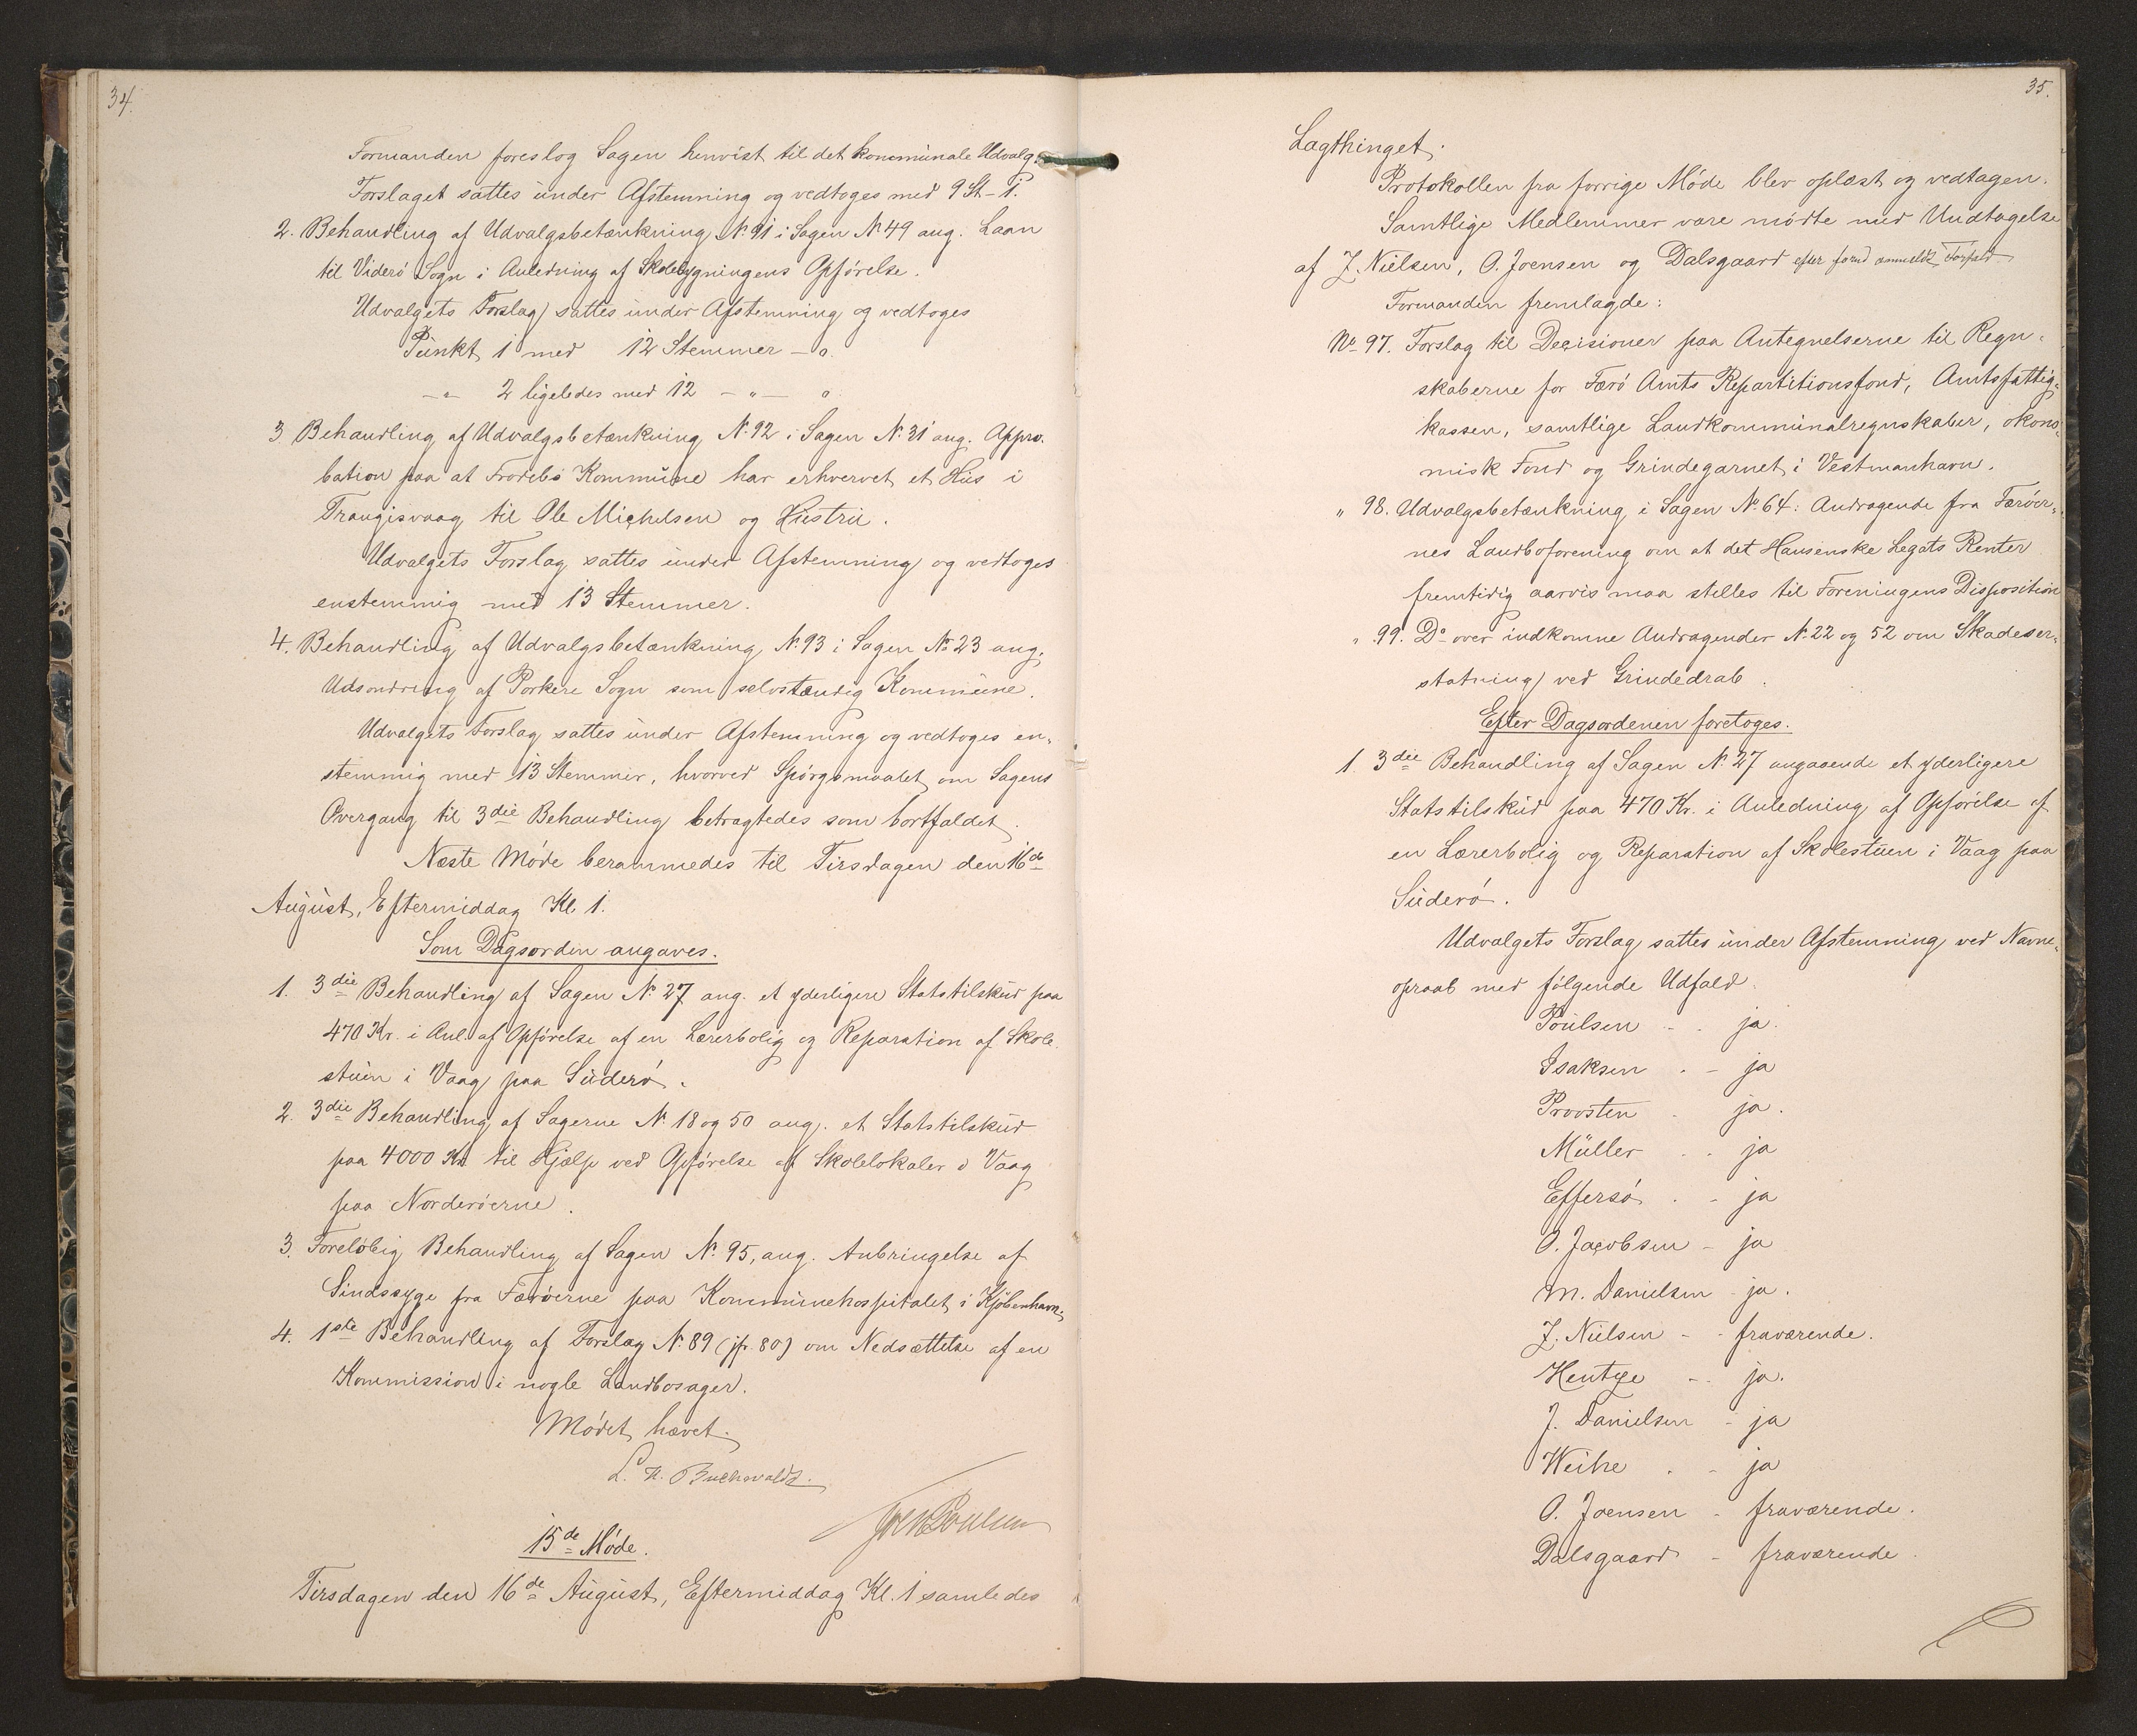 34.
Formanden foreslog Sagen henvist til det kommunale Udvalg.
Forslaget sattes under Afstemning og vedtoges med 9 St - 1.
2. Behandling af Udvalgsbetænkning No 91 i Sagen No 49 ang. Laan
til Viderö Sogn i Anledning af Skolebygningens Opförelse.
Udvalgets Forslag sattes under Afstemning og vedtoges
Punkt 1 med 12 Stemmer - 0.
-„- 2 ligeledes med 12 -„- 0
3. Behandling af Udvalgsbetænkning No 92 i Sagen No 31 ang. Appro-
bation paa at Frodebö Kommune har erhvervet et Hus i
Trangisvaag til Ole Michelsen og Hustru.
Udvalgets Forslag sattes under Afstemning og vedtoges
enstemmig med 13 Stemmer.
4. Behandling af Udvalgsbetænkning No 93 i Sagen No 23 ang.
Udsondring af Porkere Sogn som selvstændig Kommune.
Udvalgets Forslag sattes under Afstemning og vedtoges en-
stemmig med 13 Stemmer, hvorved Spörgsmaalet om Sagens
Overgang til 3die Behandling betragtedes som bortfaldet.
Næste Möde berammedes til Tirsdagen den 16de
August, Eftermiddag Kl. 1.
Som Dagsorden angaves.
1. 3die Behandling af Sagen No 27 ang. et yderligere Statstilskud paa
470 Kr. i Anl. af Opförelse af en Lærerbolig og Reparation af Skole-
stuen i Vaag paa Suderö.
2. 3die Behandling af Sagerne No 18 og 50 ang. et Statstilskud
paa 4000 Kr. til Hjælp ved Opförelse af Skolelokaler i Vaag
paa Norderöerne.
3. Forelöbig Behandling af Sagen No 95, ang. Anbringelse af
Sindssyge fra Færöerne paa Kommunehospitalet i Kjöbenhavn.
4. 1ste Behandling af Forslag No 89 (jfr. 80) om Nedsættelse af en
Kommission i nogle Landbosager.
Mödet hævet.
L. N. Buchwaldt.
Poulsen
15de Möde.
Tirsdagen den 16de August, Eftermiddag Kl. 1 samledes
35.
Lagthinget.
Protokollen fra forrige Möde blev oplæst og vedtagen.
Samtlige Medlemmer vare mödte med Undtagelse
af J. Nielsen, O. Joensen og Dalsgaard efter forud anmeldt Forfald
Formanden fremlagde:
No 97. Forslag til Decisioner paa Antegnelserne til Regn-
skaberne for Færö Amts Repartitionsfond, Amtsfattig-
kassen, samtlige Landkommunalregnskaber, ökono-
misk Fond og Grindegarnet i Vestmanhavn.
„ 98. Udvalgsbetænkning i Sagen No 64: Andragende fra Færöer-
nes Landboforening om at det Hansenske Legats Renter
fremtidig aarvis maa stilles til Foreningens Disposition
„ 99. Do over indkomne Andragender No 22 og 52 om Skadeser-
statning ved Grindedrab.
Efter Dagsordenen foretoges.
1. 3die Behandling af Sagen No 27 angaaende et yderligere
Statstilskud paa 470 Kr. i Anledning af Opförelse af
en Lærerbolig og Reparation af Skolestuen i Vaag paa
Suderö.
Udvalgets Forslag sattes under Afstemning ved Navne-
opraab med fölgende Udfald.
Poulsen - - ja.
Isaksen - - ja
Provsten - ja.
Müller - - ja
Effersö - - ja
O. Jacobsen - ja
M. Danielsen - ja.
J. Nielsen - - fraværende.
Hentze - - ja.
J. Danielsen - ja
Weihe - - ja
O. Joensen - fraværende.
Dalsgaard - fraværende.